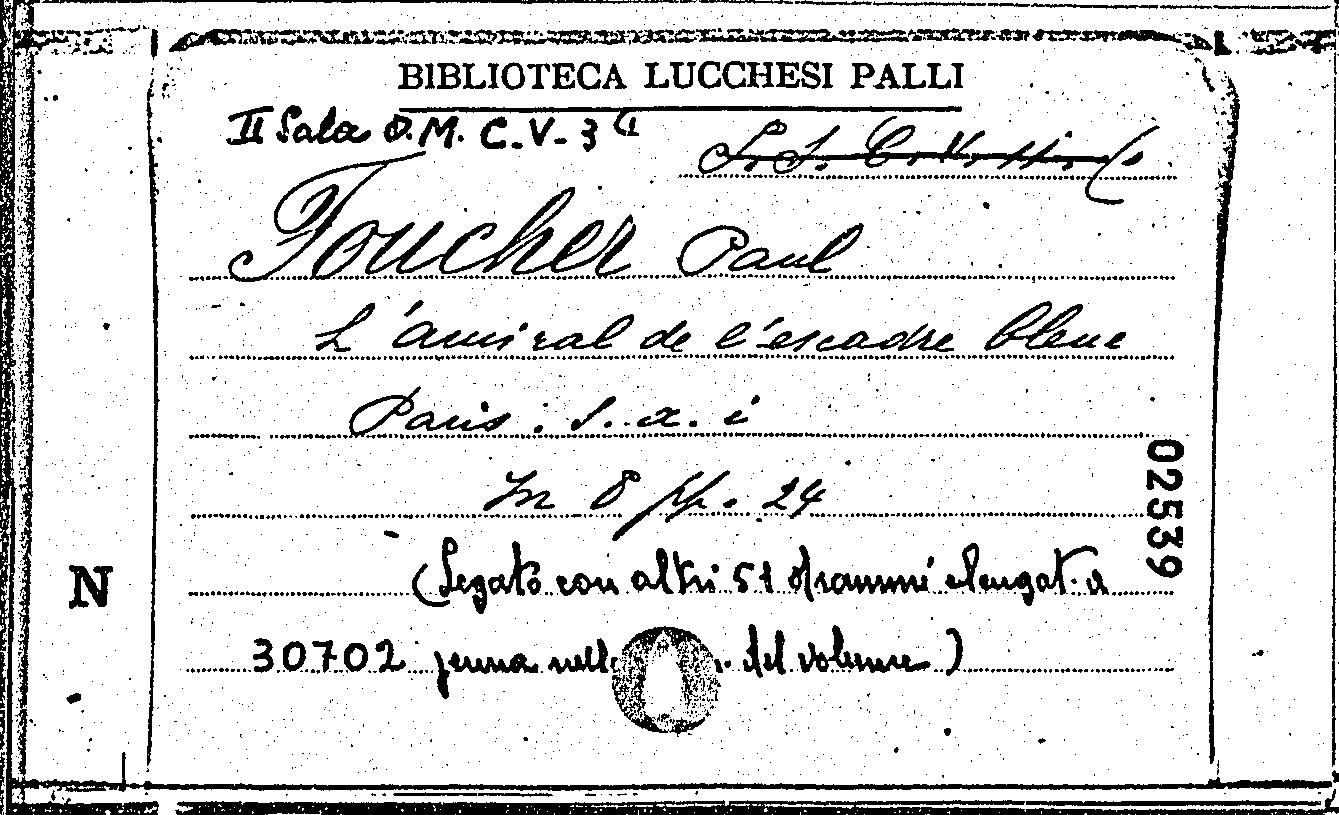 BIBLIOTECA LUCCHESI PALLI
II Sala O.M. C.V-3 (1
Foucher Paul
L'amiral de l'escadre bleue
Paris: s. a. i
In 8 pp. 24
02539
(Legato con altri 51 drammi
N
30702 del volume)